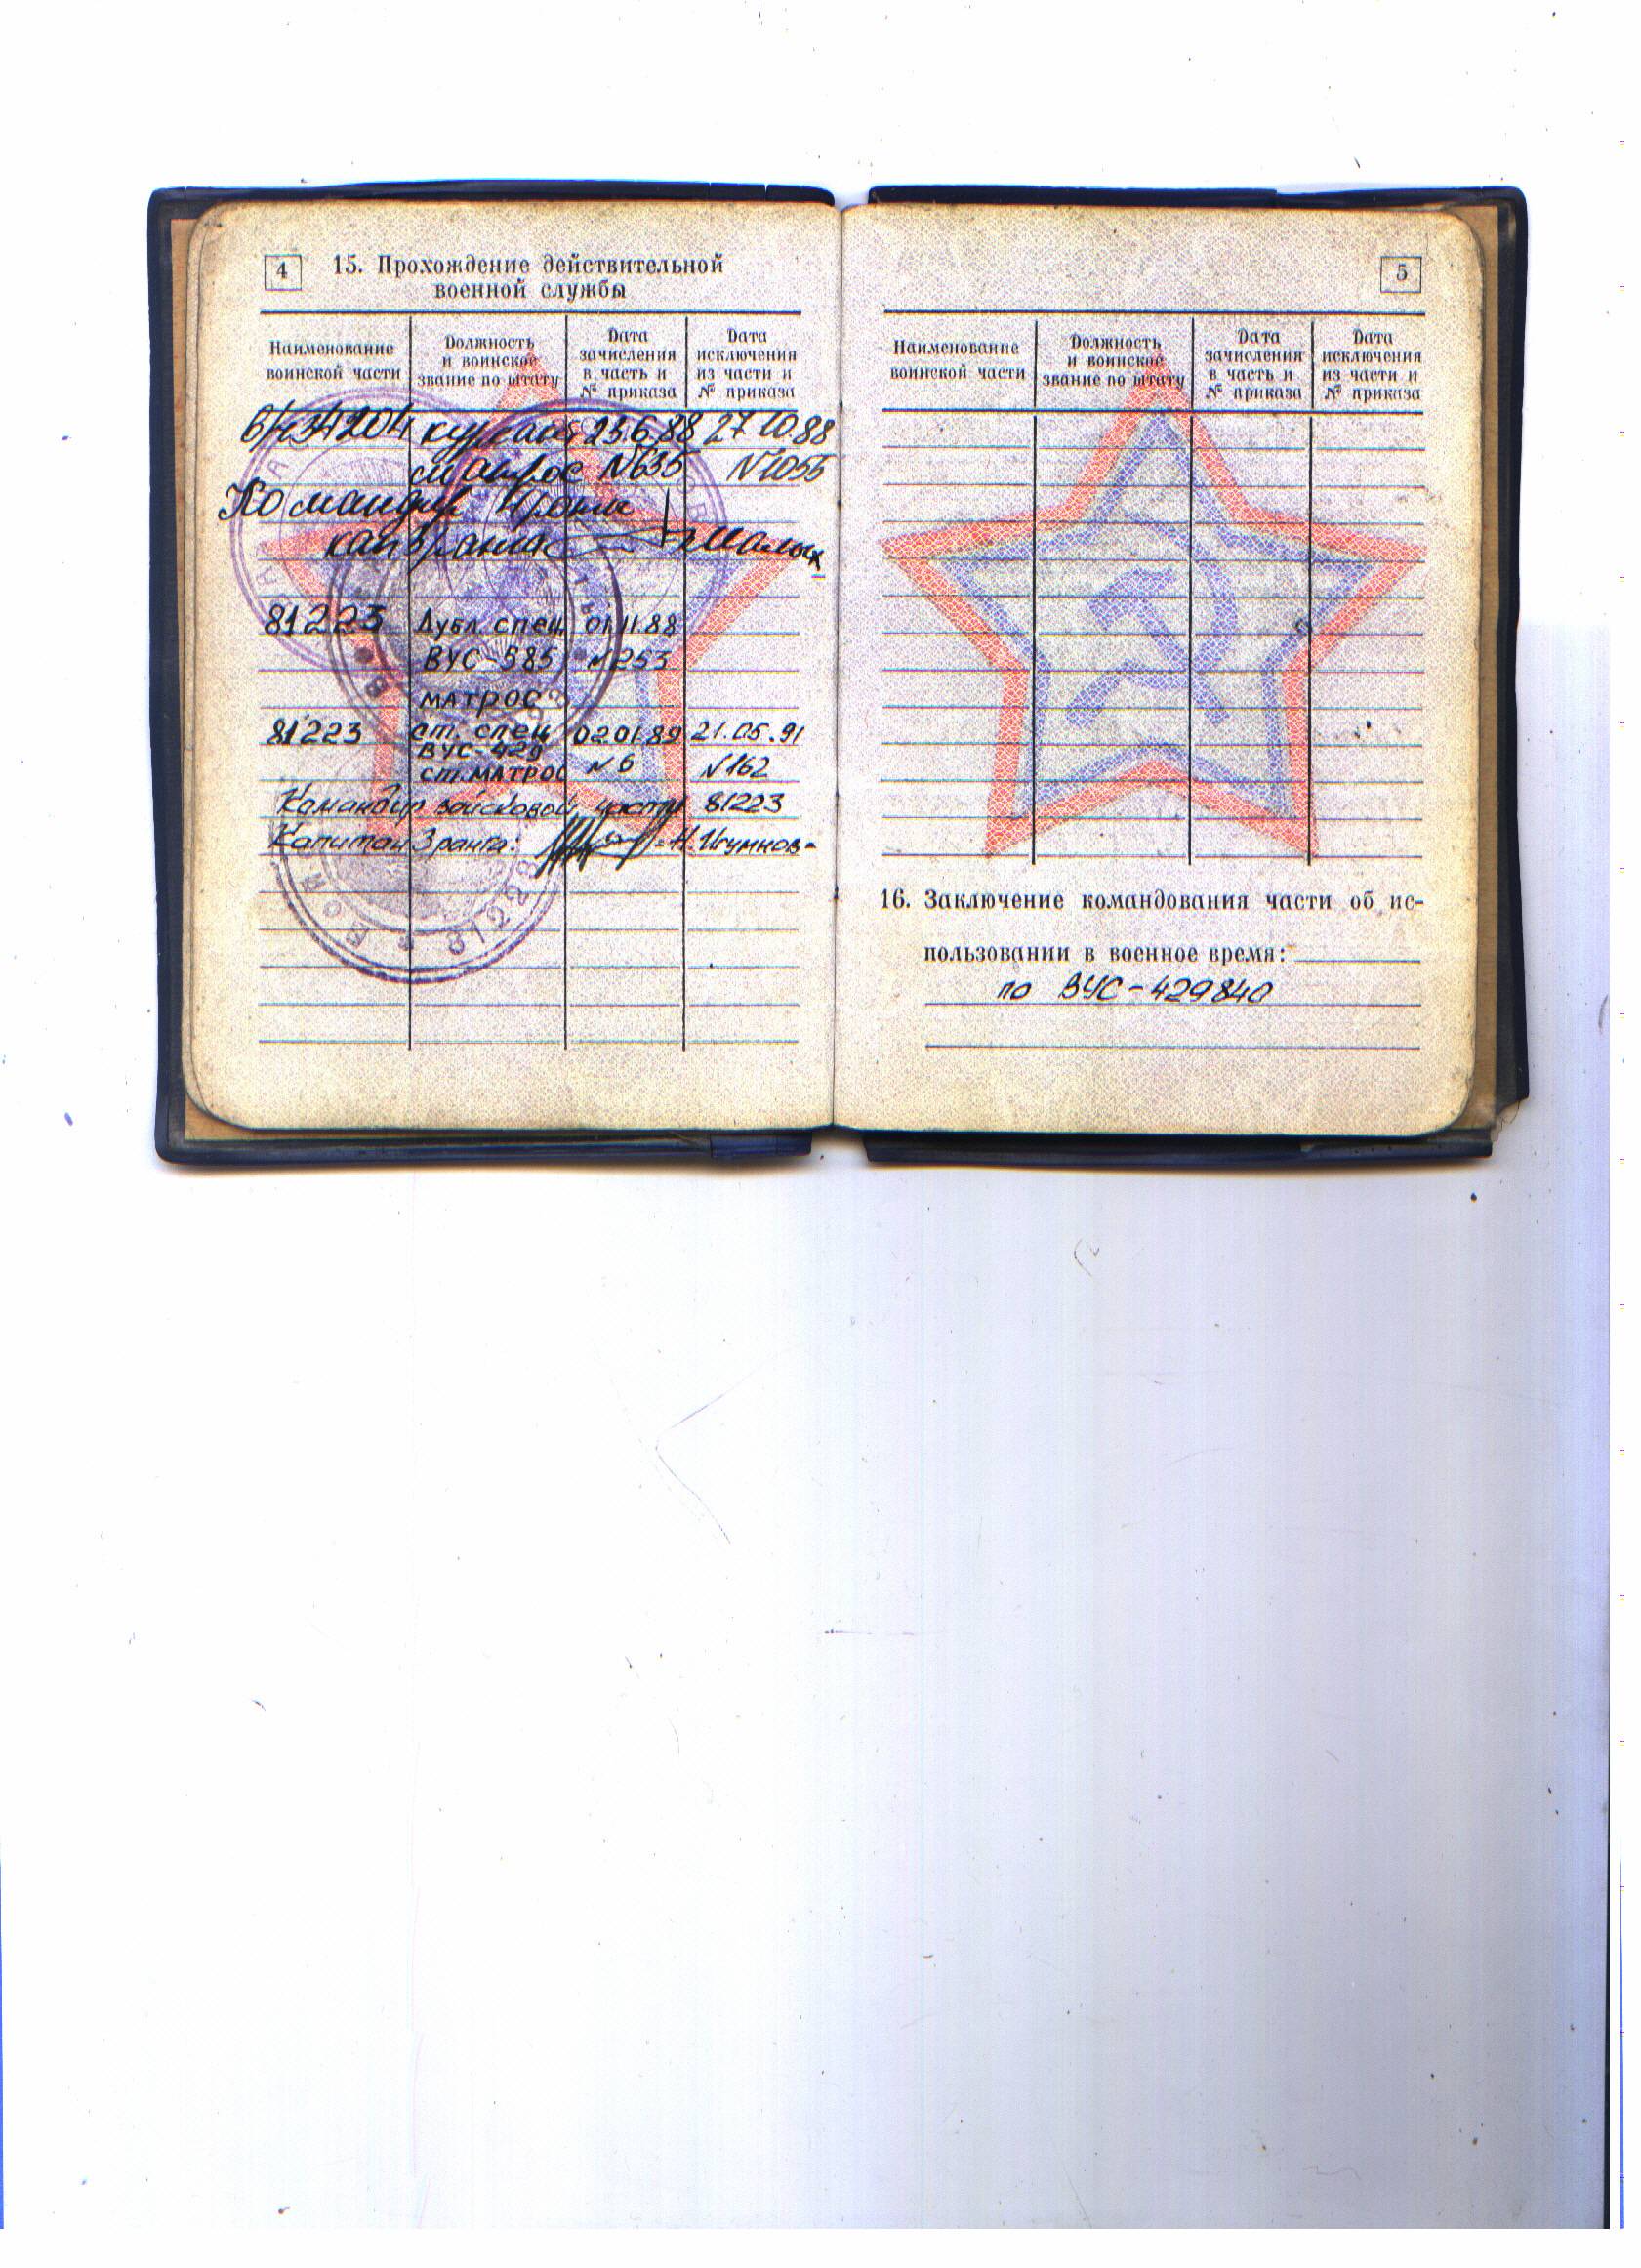 4
15. Прохождение действительной
военной службы
Наименование
воинской части
Должность
и воинское
звание по штату
Дата
зачисления
в часть и
№ приказа
Дата
исключения
из части и
№ приказа
в/ч 34204 курсант 23.6.88 27.10.88
матрос №635 №1055
Командир роты
кап 3 ранга Малых
81223 Дубл. спец 01.11.88
ВУС-585 №253
матрос
81223 ст. спец 02.01.89 21.05.91
ВУС-429
ст. матрос №6 №162
Командир войсковой части 81223
Капитан 3 ранга: Игумнов
81223
5
Наименование
воинской части
Должность
и воинское
звание по штату
Дата
зачисления
в часть и
№ приказа
Дата
исключения
из части и
№ приказа
16. Заключение командования части об ис-
пользовании в военное время:
по ВУС-429840